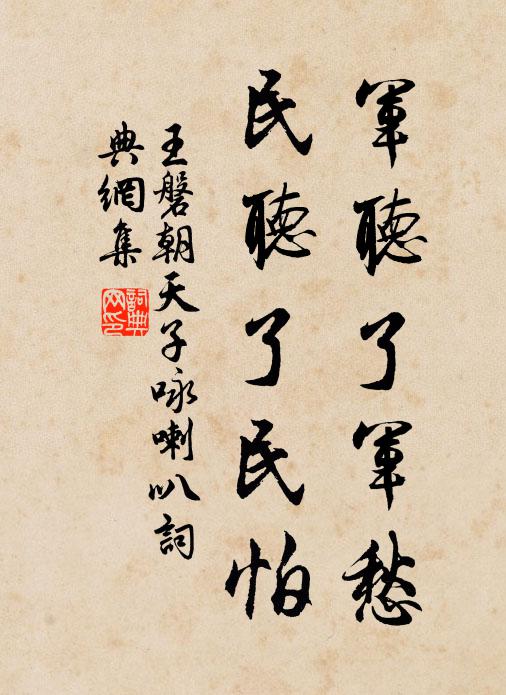 軍聽了軍愁
民聽了民怕
王磐朝天子咏喇叭詞
典網集
詞典
网印